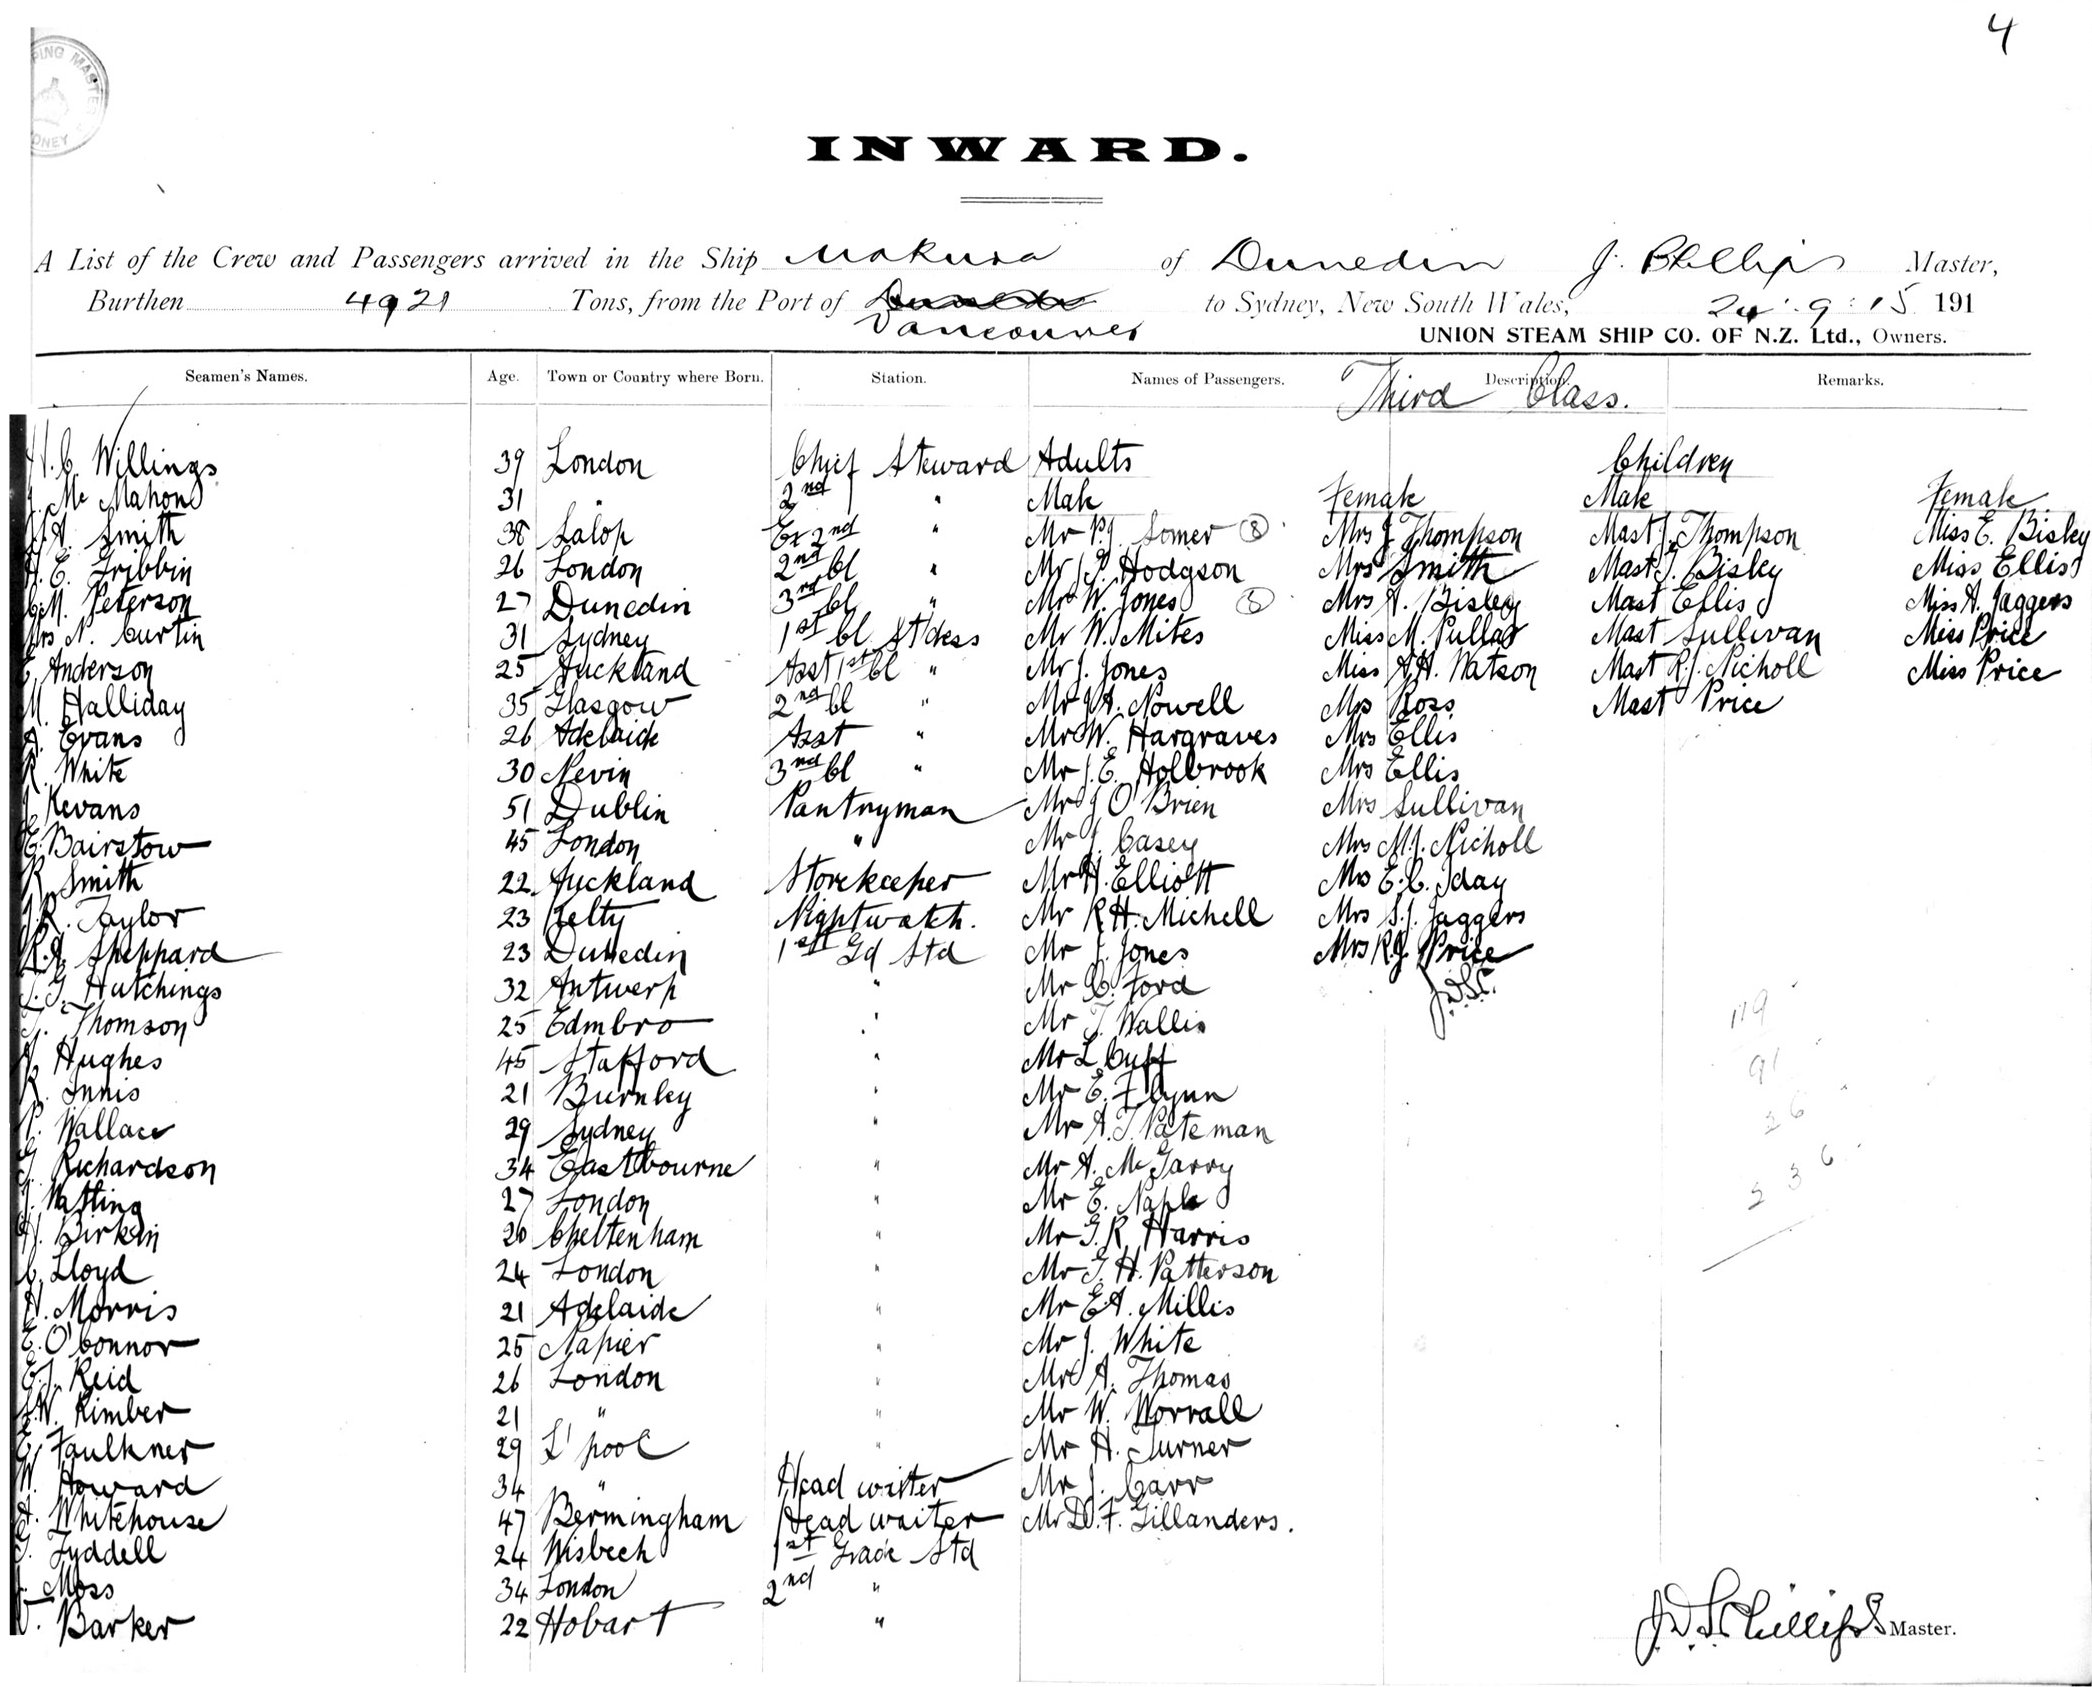 4
PING MASTER
DNEY
INWARD.
A List of the Crew and Passengers arrived in the Ship Makura of Dunedin J. Phillips Master,
Burthen 4921 Tons, from the Port of Vancouver to Sydney, New South Wales, 24 : 9 : 15 191
UNION STEAM SHIP CO. OF N.Z. Ltd., Owners.
Seamen's Names. Age. Town or Country where Born. Station. Names of Passengers. Description. Remarks.
Third Class.
Willings 39 London Chief Steward Adults Children
Mc Mahon 31 " 2nd " Male Female Male Female
Smith 38 Salop Ex 2nd " Mr P.J. Somer (8) Mrs J Thompson Mast J. Thompson Miss E. Bisley
H. E. Gribbin 26 London 2nd Cl " Mr Hodgson Mrs Smith Mast J. Bisley Miss Ellis
C.M. Peterson 27 Dunedin 3rd Cl " Mr W. Jones (8) Mrs A. Bisley Mast Ellis Miss A. Jaggers
Mrs N. Curtin 31 Sydney 1st Cl St'dess Mr W. Mites Miss M. Pullar Mast Sullivan Miss Price
Anderson 25 Auckland Asst 1st Cl " Mr J. Jones Miss A.H. Watson Mast R.J. Nicholl Miss Price
M. Halliday 35 Glasgow 2nd Cl " Mr J.A. Nowell Mrs Ross Mast Price
A. Evans 26 Adelaide Asst " Mr W. Hargraves Mrs Ellis
R. White 30 Nevin 3rd Cl " Mr J. E. Holbrook Mrs Ellis
J Kevans 51 Dublin Pantryman Mr J O'Brien Mrs Sullivan
E. Bairstow 45 London " Mr J. Casey Mrs M.J. Nicholl
R. Smith 22 Auckland Storekeeper Mr H. Elliott Mrs E.C. Iday
J.R. Taylor 23 Kelty Nightwatch. Mr R.H. Michell Mrs S.J. Jaggers
Sheppard 23 Dunedin 1st Gd Std Mr J. Jones Mrs R.J. Price
Hutchings 32 Antwerp " Mr C. Ford J.D.S.P.
Thomson 25 Edmbro " Mr T. Wallis 119
Hughes 45 Stafford " Mr L Cuff 91
R. Innis 21 Burnley " Mr E. Flynn 26
P. Wallace 29 Sydney " Mr A.T. Pateman
G Richardson 34 Eastbourne " Mr A. Mc Garry 236
J. Watling 27 London " Mr E. Naple
Birkin 20 Cheltenham " Mr G.R. Harris
C. Lloyd 24 London " Mr G. H. Patterson
H. Morris 21 Adelaide " Mr E.A. Millis
E. O'Connor 25 Napier " Mr J. White
E.J. Reid 26 London " Mr A. Thomas
W. Kimber 21 " " Mr W. Worrall
Faulkner 29 L'pool " Mr H. Turner
W. Howard 34 " Head waiter Mr J. Carr
A. Whitehouse 47 Bermingham Head waiter Mr D.F. Gillanders.
G. Lyddell 24 Wisbech 1st Grade Std
Moss 34 London 2nd "
Barker 22 Hobart "
J D S Phillips Master.